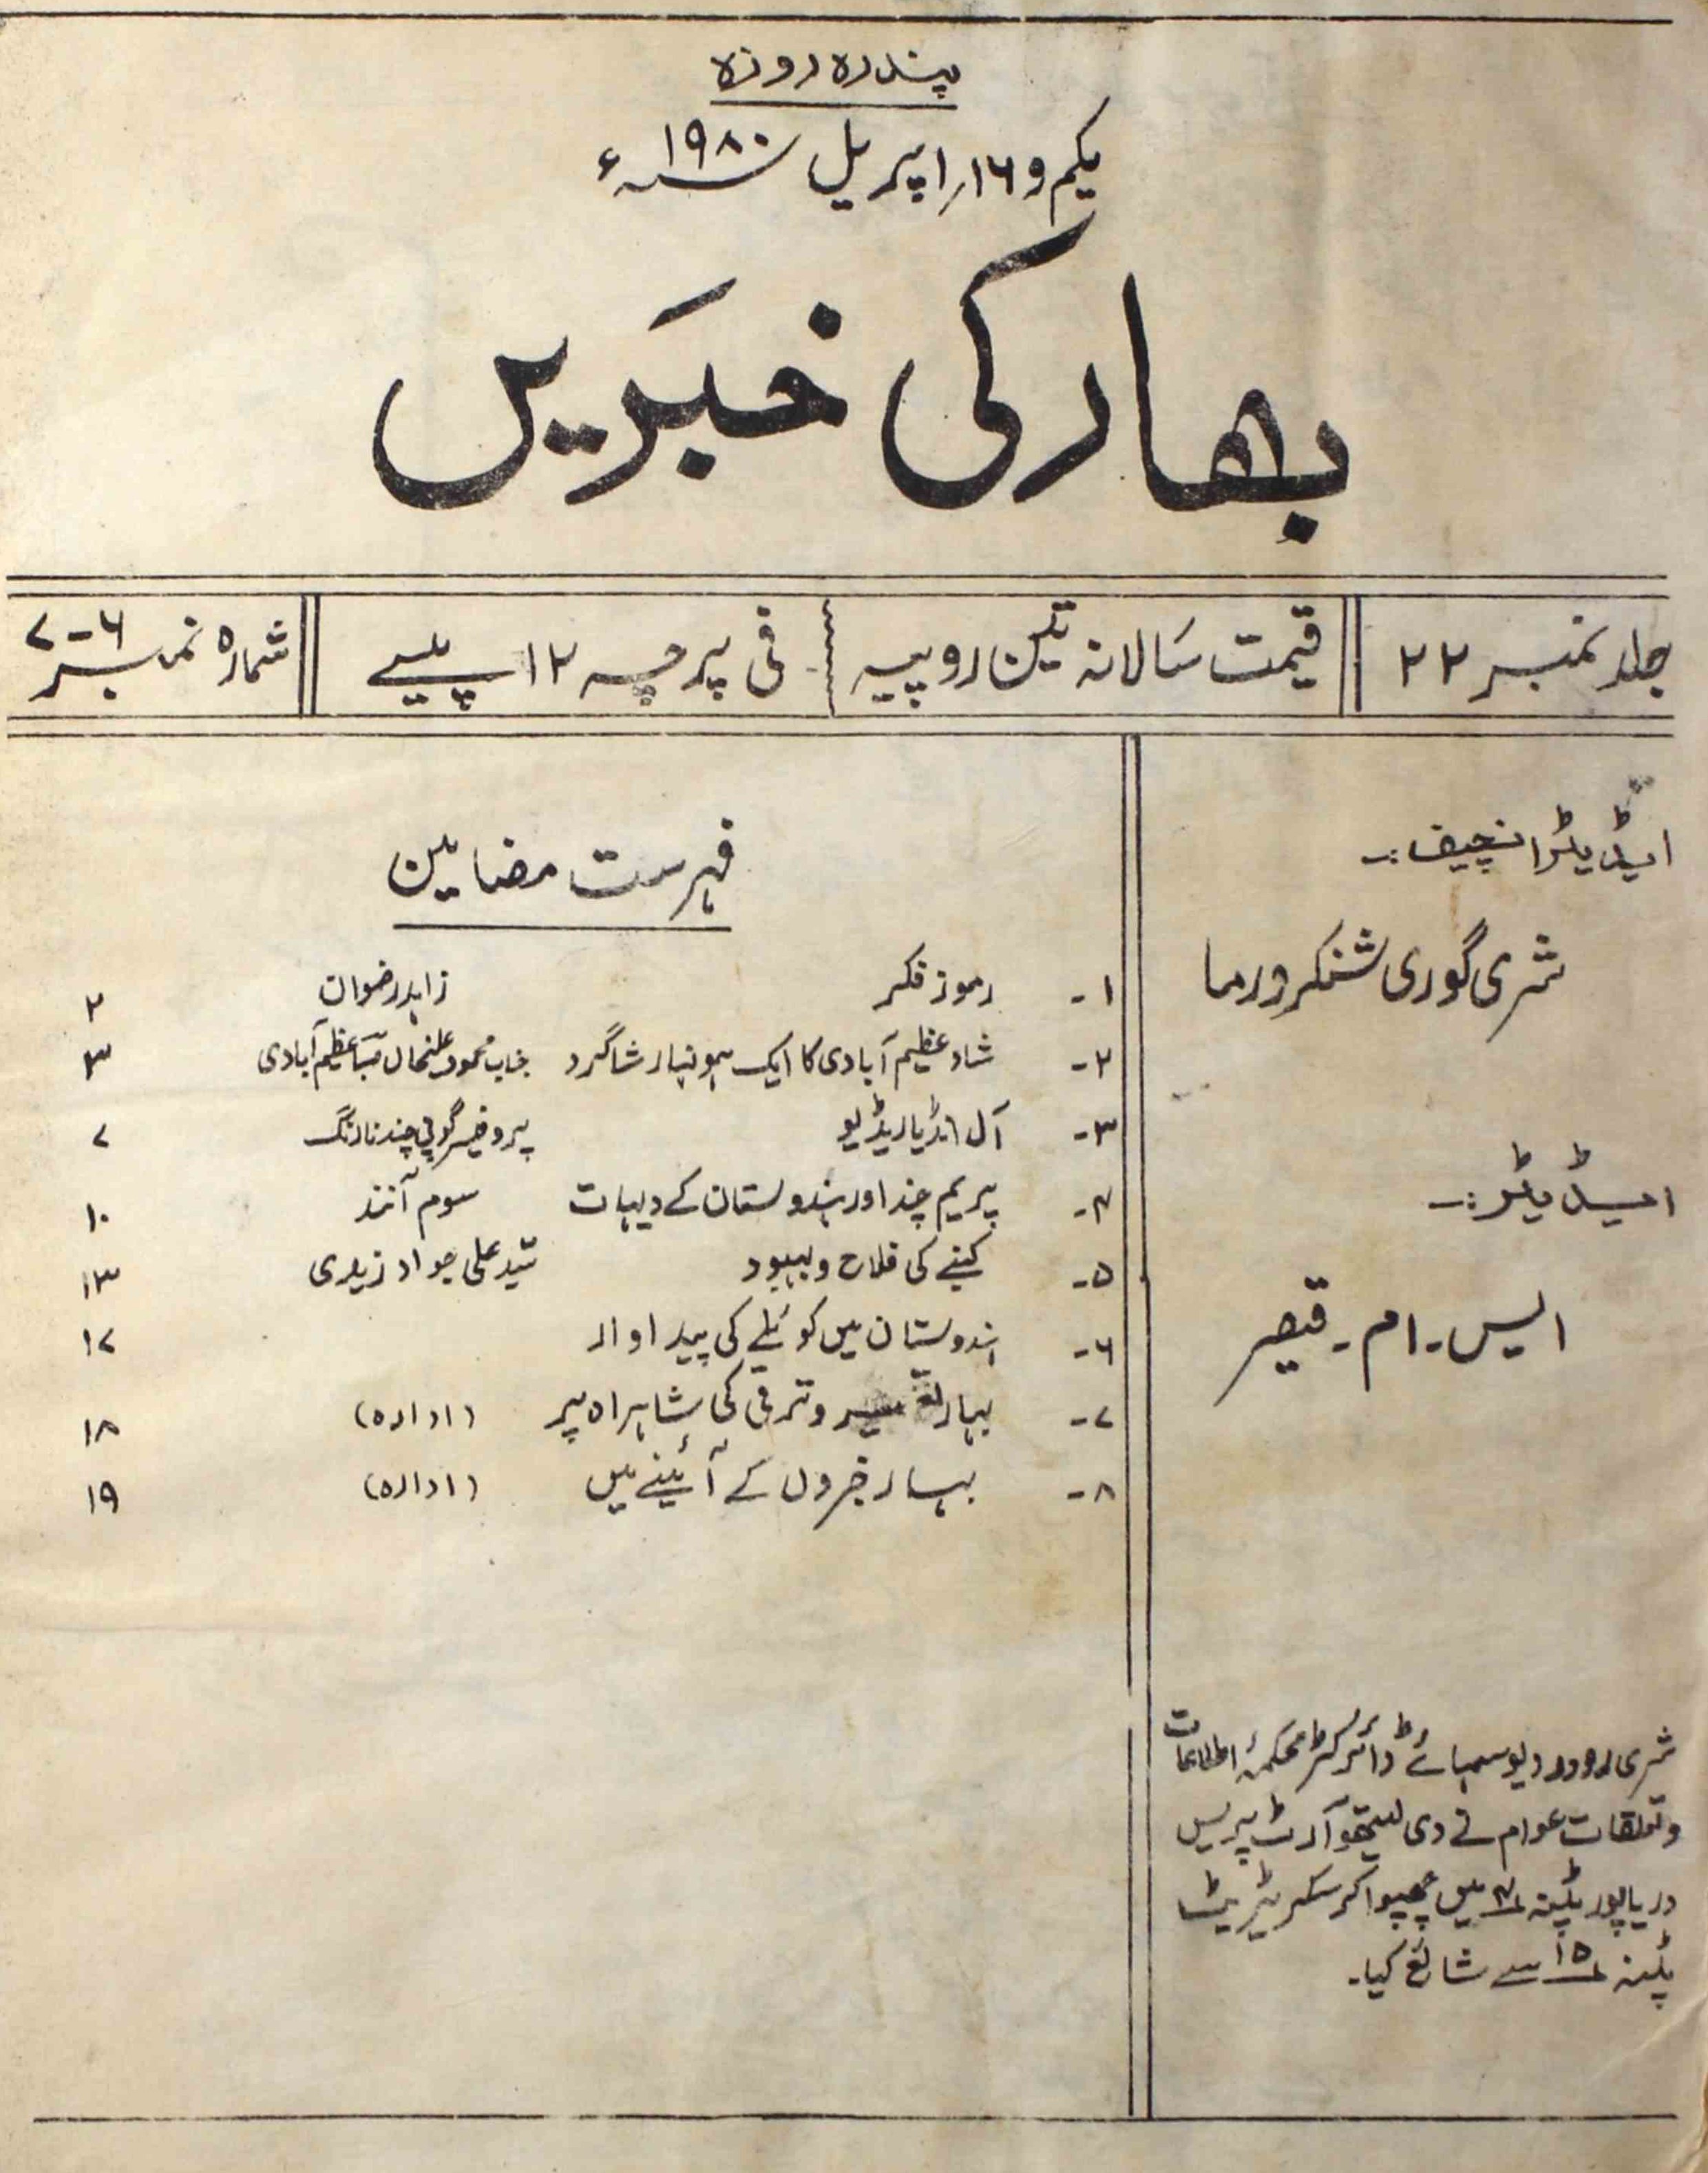 پندرہ روزہ
یکم و ۱۶؍ اپریل ۱۹۸۰ء
بہار کی خبریں
جلد نمبر ۲۲ قیمت سالانہ تین روپیہ فی پرچہ ۱۲ پیسے شمارہ نمبر ۶-۷
ایڈیٹر انچیف :۔
شری گوری شنکر ورما
ایڈیٹر :۔
ایس۔ ام۔ قیصر
شری دیو سہائے ڈائرکٹر محکمۂ اطلاعات
و تعلقات عوام نے دی لیتھو آرٹ پریس
دریاپور پٹنہ ۴ میں چھپوا کر سکریٹریٹ
پٹنہ ۱۵ سے شائع کیا۔
فہرست مضامین
۱۔ رموز فکر زاہد رضوان ۲
۲۔ شاد عظیم آبادی کا ایک ہونہار شاگرد جناب محمود علیخاں صبا عظیم آبادی ۳
۳۔ آل انڈیا ریڈیو پروفیسر گوپی چند نارنگ ۷
۴۔ پریم چند اور ہندوستان کے دیہات سوم آنند ۱۰
۵۔ کنبے کی فلاح و بہبود سید علی جواد زیدی ۱۳
۶۔ ہندوستان میں کوئلے کی پیداوار ۱۷
۷۔ بہار تعمیر و ترقی کی شاہراہ پر (ادارہ) ۱۸
۸۔ بہار خبروں کے آئینے میں (ادارہ) ۱۹